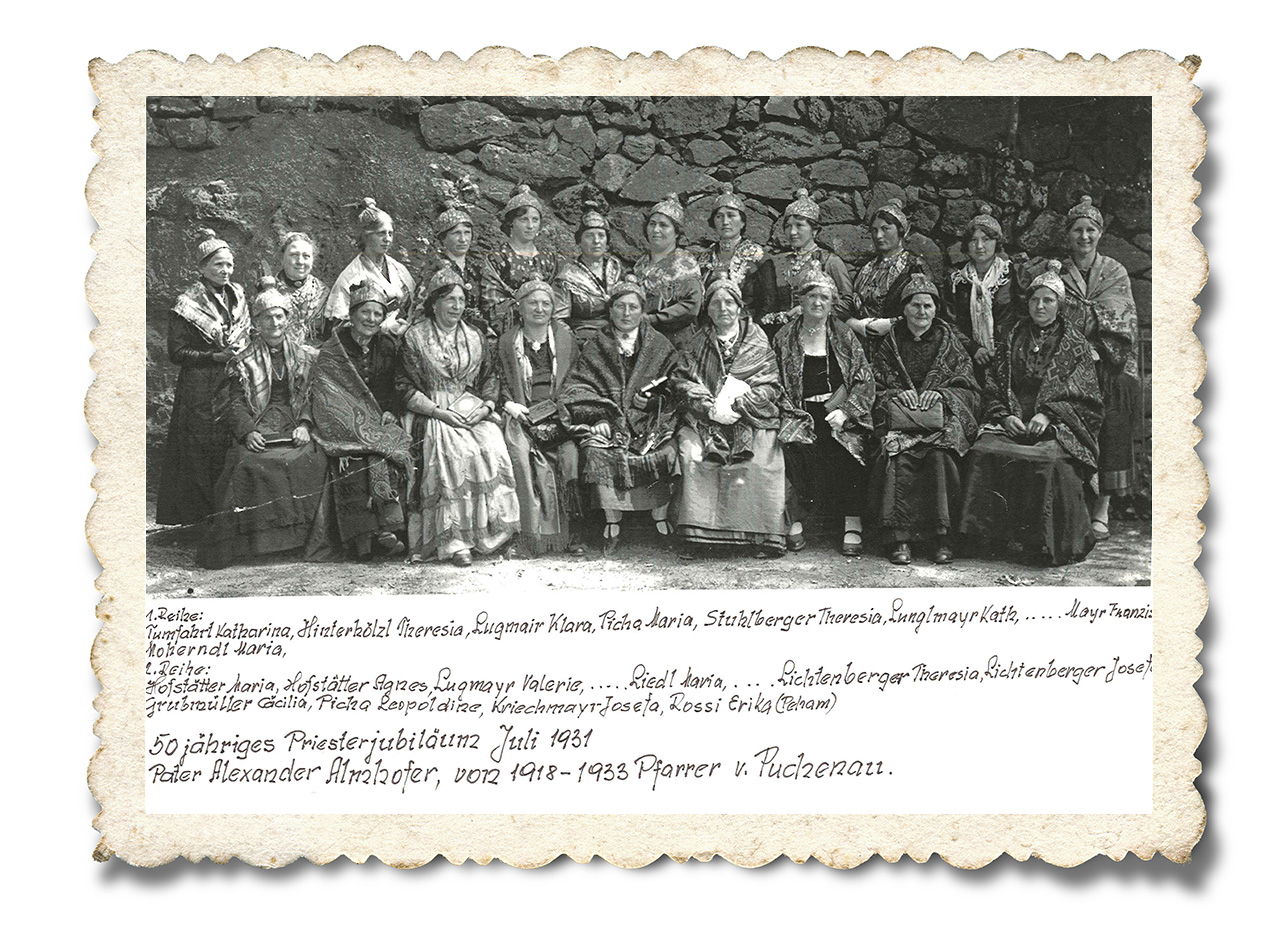 1. Reihe:
Tumfahrt Katharina, Hinterhölzl Theresia, Lugmair Klara, Picha Maria, Stuhlberger Theresia, Lunglmayr Kath, ..... Mayr Franzis
Moherndl Maria,
2. Reihe:
Hofstätter Maria, Hofstätter Agnes, Lugmayr Valerie, ..... Liedl Maria, .... Lichtenberger Theresia, Lichtenberger Josefa
Grubmüller Cäcilia, Picha Leopoldine, Kriechmayr Josefa, Rossi Erika (Peham)
50 jähriges Priesterjubiläum Juli 1931
Pater Alexander Almhofer, von 1918-1933 Pfarrer v. Puchenau.